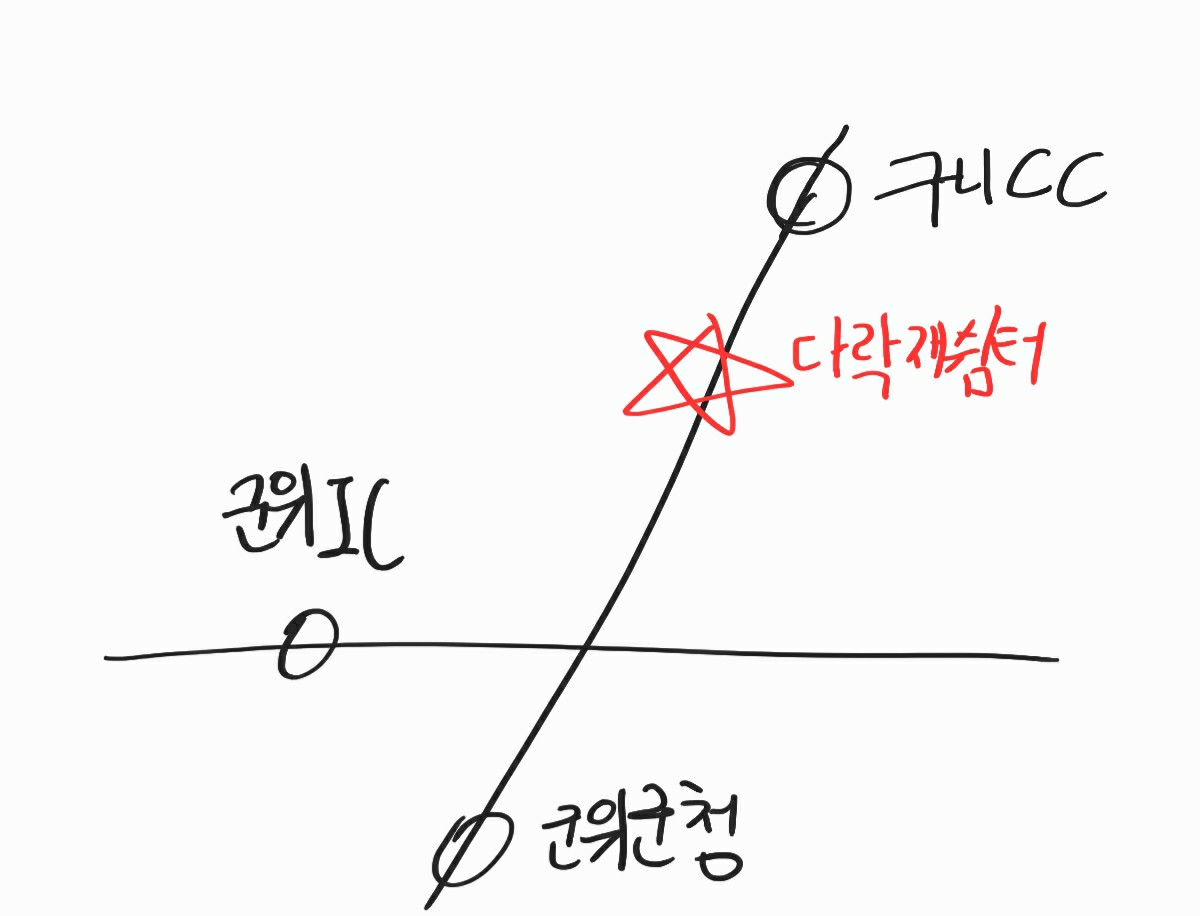 구니CC
다락재쉼터
군위IC
군위군청